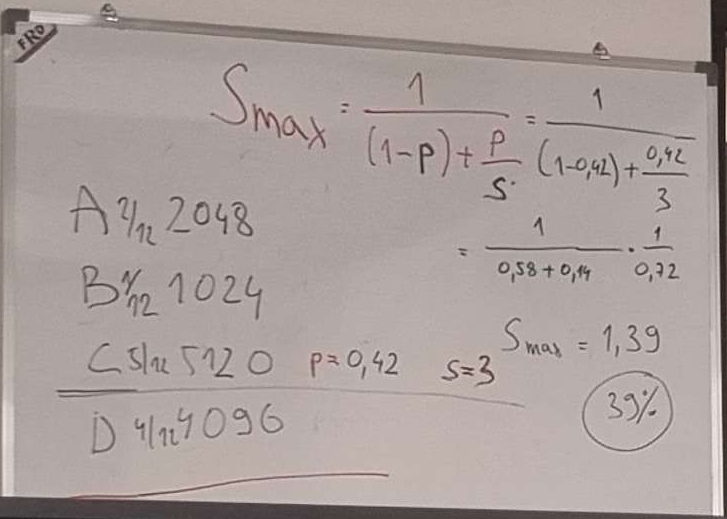 FRO
S_max = 1 / ((1-p) + p/s) = 1 / ((1-0,42) + 0,42/3)
= 1 / (0,58 + 0,14) · 1/0,72
A 2/12 2048
B 1/12 1024
C 5/12 5120 p=0,42 s=3
S_max = 1,39
D 4/12 4096
39%